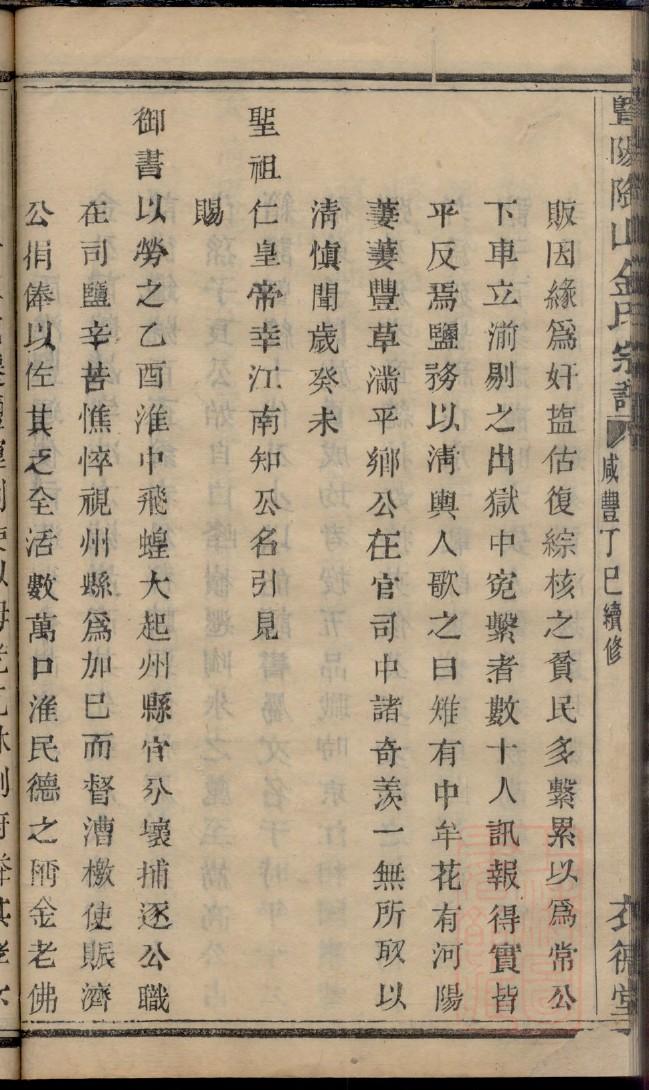 暨陽陶山金氏宗譜 咸豐丁巳續修 衣德堂
販因緣爲奸塩估復綜核之貧民多繫累以爲常公
下車立湔剔之出獄中寃繫者數十人訊報得實皆
平反焉鹽務以淸輿人歌之曰雉有中牟花有河陽
萋萋豐草滿平鄉公在官司中諸奇羨一無所取以
淸愼聞歲癸未
聖祖仁皇帝幸江南知公名引見
賜
御書以勞之乙酉淮中飛蝗大起州縣官分壤捕逐公職
在司鹽辛苦憔悴視州縣爲加巳而督漕檄使賑濟
公捐俸以佐其乏全活數萬口淮民德之號金老佛